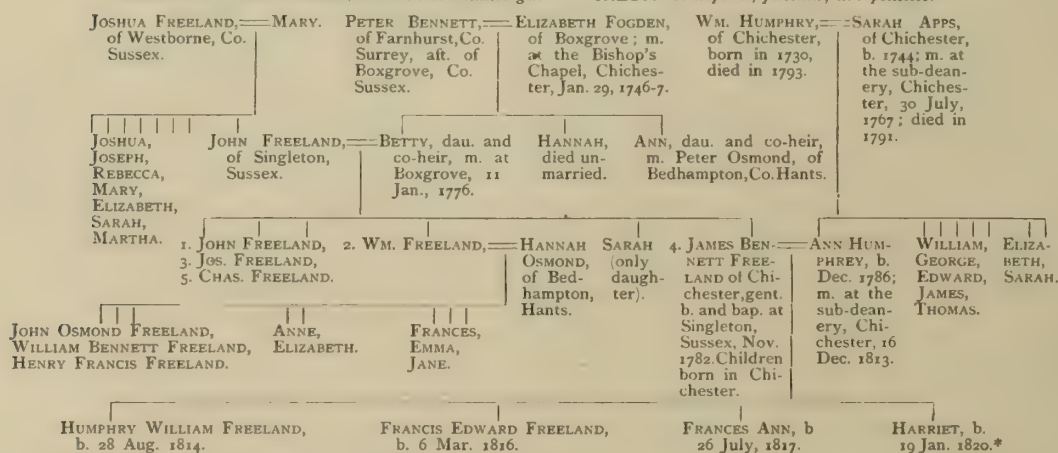 JOSHUA FREELAND,
of Westborne, Co.
Sussex.
MARY.
PETER BENNETT,
of Farnhurst, Co.
Surrey, aft. of
Boxgrove, Co.
Sussex.
ELIZABETH FOGDEN,
of Boxgrove; m.
at the Bishop's
Chapel, Chiches-
ter, Jan. 29, 1746-7.
WM. HUMPHRY,
of Chichester,
born in 1730,
died in 1793.
SARAH APPS,
of Chichester,
b. 1744; m. at
the sub-dean-
ery, Chiches-
ter, 30 July,
1767; died in
1791.
JOSHUA,
JOSEPH,
REBECCA,
MARY,
ELIZABETH,
SARAH,
MARTHA.
JOHN FREELAND,
of Singleton,
Sussex.
BETTY, dau. and
co-heir, m. at
Boxgrove, 11
Jan., 1776.
HANNAH,
died un-
married.
ANN, dau. and co-heir,
m. Peter Osmond, of
Bedhampton, Co. Hants.
1. JOHN FREELAND,
3. JOS. FREELAND,
5. CHAS. FREELAND.
2. WM. FREELAND,
HANNAH
OSMOND,
of Bed-
hampton,
Hants.
SARAH
(only
daugh-
ter).
4. JAMES BEN-
NETT FREE-
LAND of Chi-
chester, gent.
b. and bap. at
Singleton,
Sussex, Nov.
1782. Children
born in Chi-
chester.
ANN HUM-
PHREY, b.
Dec. 1786;
m. at the
sub-dean-
ery, Chi-
chester, 16
Dec. 1813.
WILLIAM,
GEORGE,
EDWARD,
JAMES,
THOMAS.
ELIZA-
BETH,
SARAH.
JOHN OSMOND FREELAND,
WILLIAM BENNETT FREELAND,
HENRY FRANCIS FREELAND.
ANNE,
ELIZABETH.
FRANCES,
EMMA,
JANE.
HUMPHRY WILLIAM FREELAND,
b. 28 Aug. 1814.
FRANCIS EDWARD FREELAND,
b. 6 Mar. 1816.
FRANCES ANN, b
26 July, 1817.
HARRIET, b.
19 Jan. 1820.*